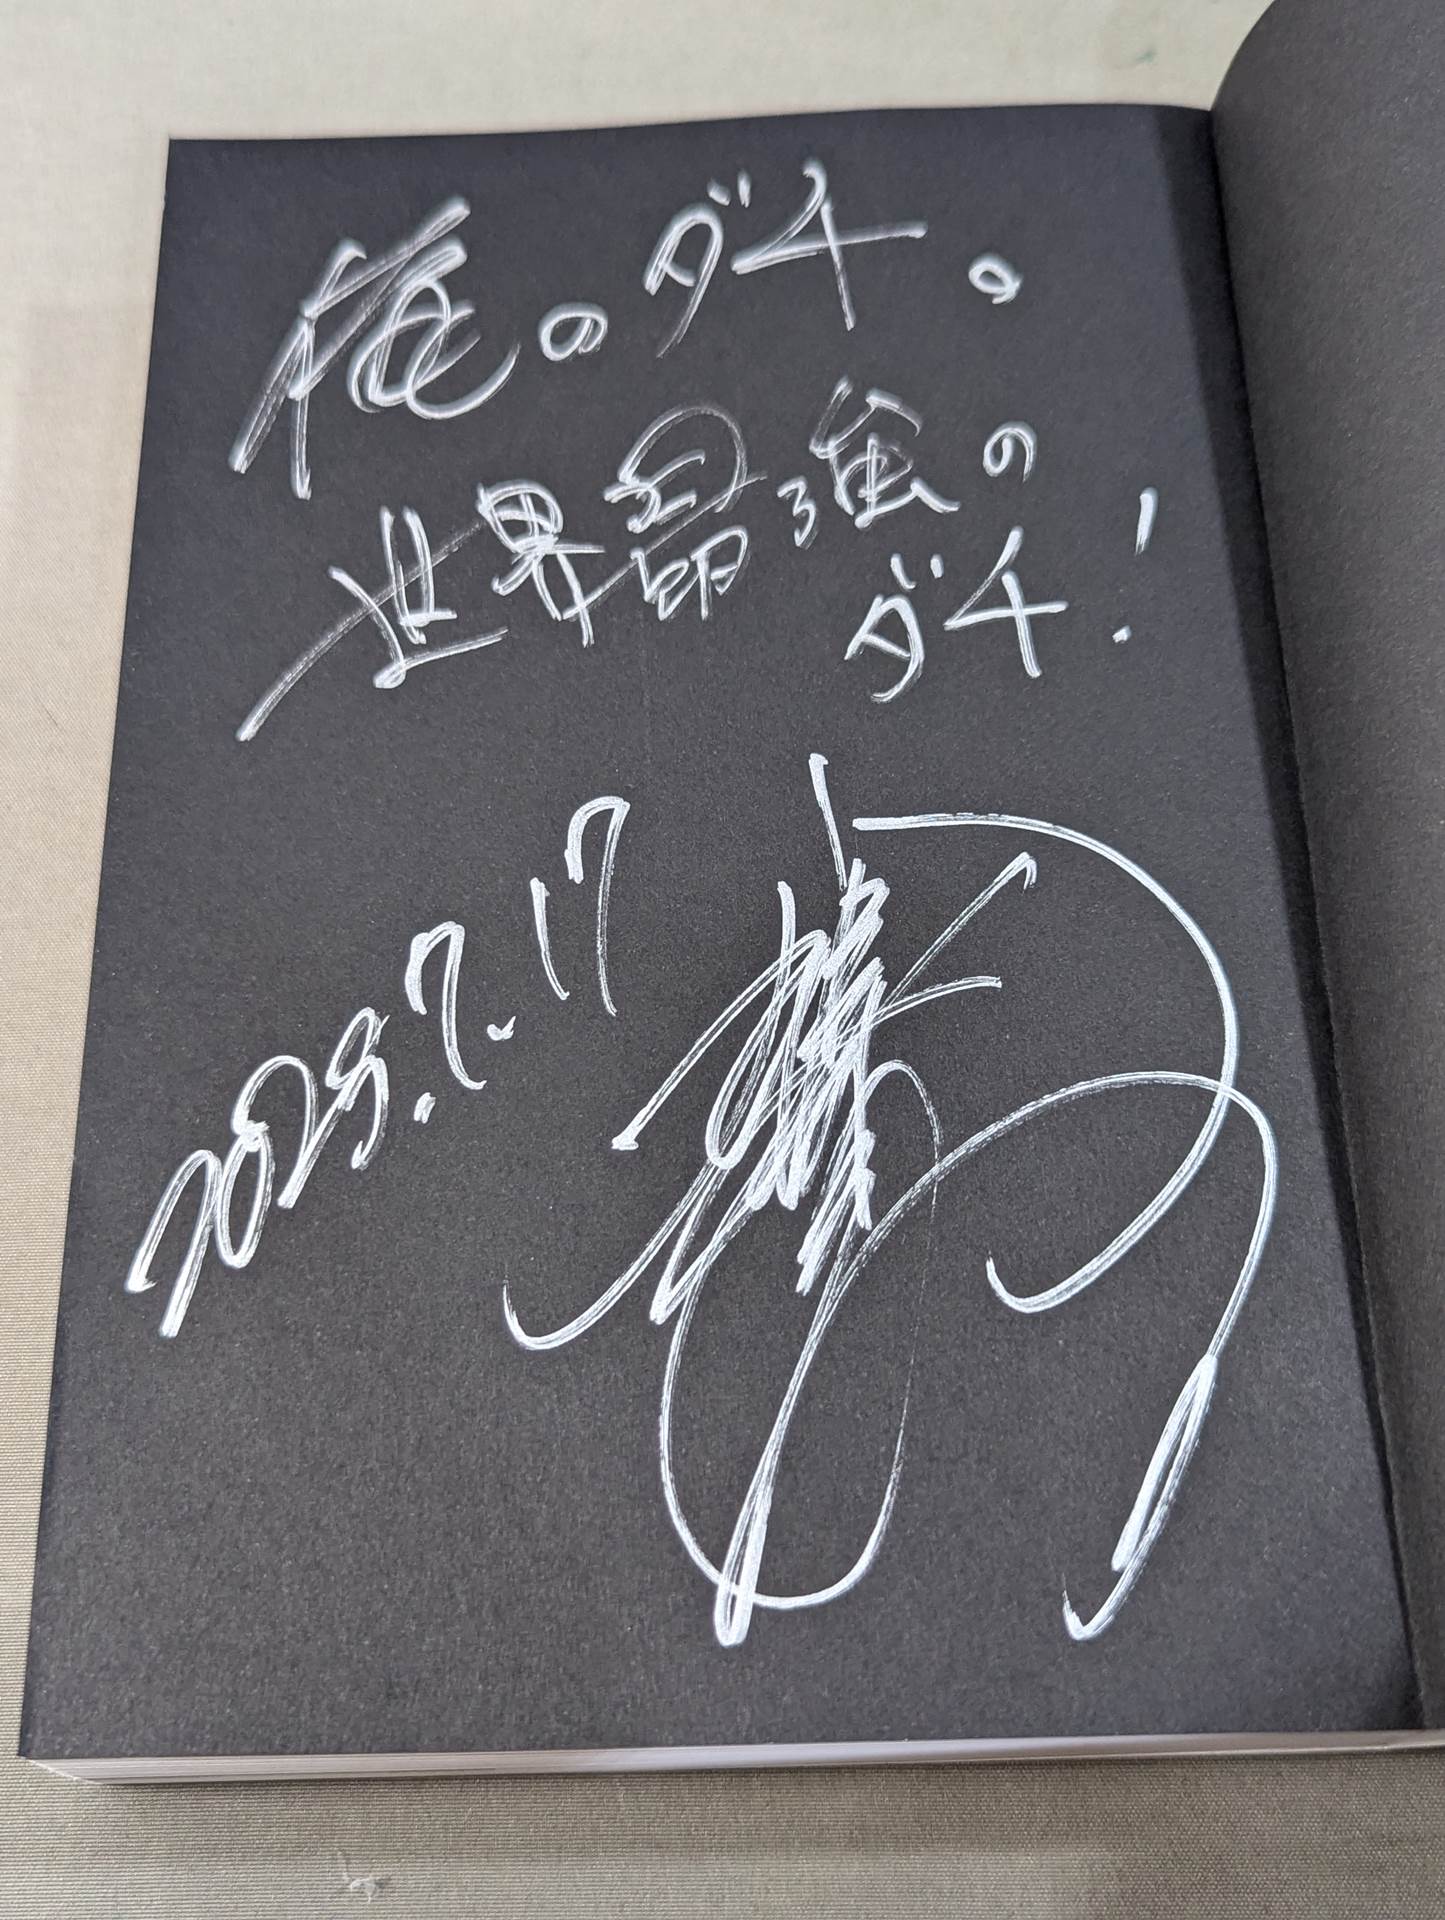 俺のダチ。
世界最強の
ダチ!
2025.7.17